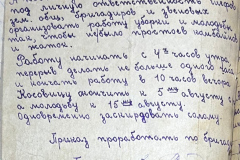 под личную ответственность
зем. обяз бригадиров и звеновых
организовать работу уборки и молотьбы
так, чтобы небыло простоев комбайнов
и жаток.
Работу начинать с 4х часов утра,
перерыв делать не больше одного часа
и кончать работу в 10 часов вечера.
Косовицу окончить к 5 му августу
а молотьбу к 15 му августу
одновременно заскирдовать солому.
Приказ проработать по бригадам